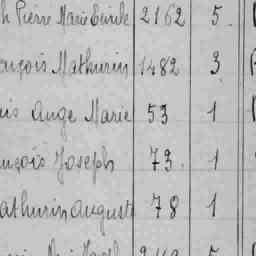 h Pierre Marie Emile 2162 5
ançois Mathurin 1482 3
uis Ange Marie 53 1
ançois Joseph 73. 1
athurin Auguste 78 1